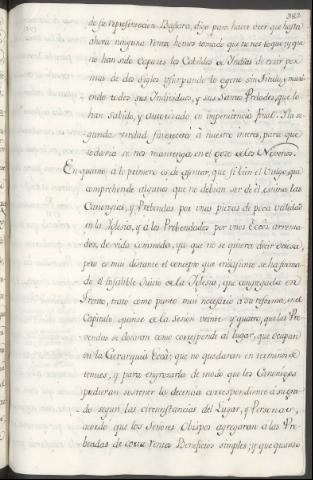 382
de su representacion Bastara, digo para hacer ver que hasta
ahora ninguna Renta hemos tomado que no nos toque; y que
no han sido capaces los Cabildos de Indias de vivir por
mas de dos Siglos usurpando lo ageno sin titulo, y murien
do todos sus Individuos, y sus Santos Prelados, que lo
han sabido, y autorizado en impenitencia final. La se
gunda verdad favorecerá á nuestro interes, para que
todavia se nos mantenga en el goce de los Novenos.
En quanto a lo primero es de asentar, que si bien el Vulgo, que
comprehende algunos que no debian ser de él, estima las
Canongias, y Prebendas por unas piezas de poca utilidad
en la Iglesia, y a los Prebendados por unos Eccos. arrenta
dos, de vida commoda, ya que no se quiera decir ociosa,
pero es muy distante el concepto que en los se ha forma
do el infalible Juicio de la Iglesia, que congregada en
Trento, trato como punto mui necesario a su reforma, en el
Capitulo quince de la Sesion veinte y quatro, que las Pre
vendas se dotaran como corresponde al lugar, que ocupan
en la Gerarquia Ecca; que no quedaran en terminos de
tenues, y para engrosarla de modo que los Canonigos
pudieran sostener la decencia correspondiente á su gra
do segun las circunstancias del Lugar, y Personas,
acordó que los Señores Obispos agregaran a las Pre
bendas de corta Renta Beneficios simples; y que quando